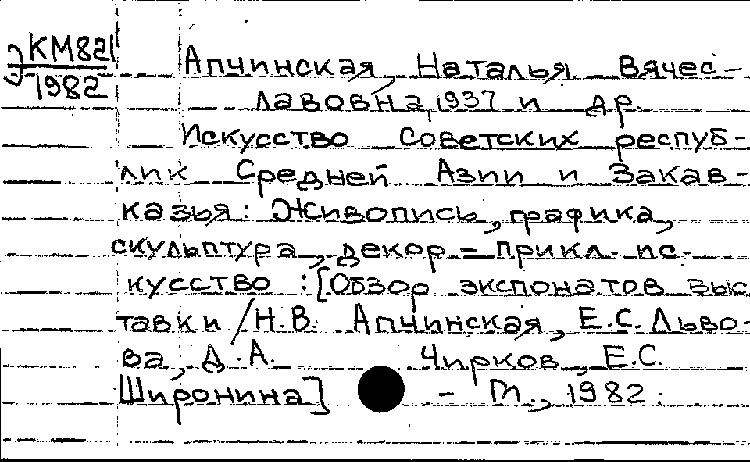 КМ82
1982
Апчинская, Наталья Вячес-
лавовна, 1937 и др.
Искусство Советских респуб-
лик Средней Азии и Закав-
казья: Живопись, графика,
скульптура, декор.-прикл. ис-
кусство : [Обзор экспонатов выс
тавки / Н.В. Апчинская, Е.С. Льво-
ва, Д.А. Чирков, Е.С.
Широнина] - М., 1982.